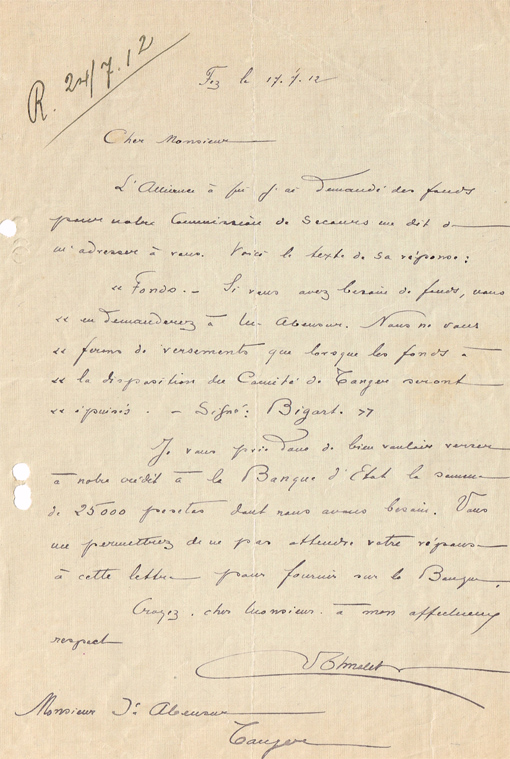 R. 24/7.12
Fez le 17.7.12
Cher Monsieur
L'Alliance à qui j'ai demandé des fonds
pour notre Commission de Secours me dit de
m'adresser à vous. Voici le texte de sa réponse :
"Fonds. - Si vous avez besoin de fonds, vous
" en demanderez à Mr Abensur. Nous ne vous
" ferons de versements que lorsque les fonds à
" la disposition du Comité de Tanger seront
" épuisés. - Signé: Bigart. "
Je vous prie donc de bien vouloir verser
à notre crédit à la Banque d'Etat la somme
de 25000 pesetas dont nous avons besoin. Vous
me permettrez de ne pas attendre votre réponse
à cette lettre pour fournir sur la Banque.
Croyez, cher Monsieur, à mon affectueux
respect
Elmaleh
Monsieur Is Abensur
Tanger